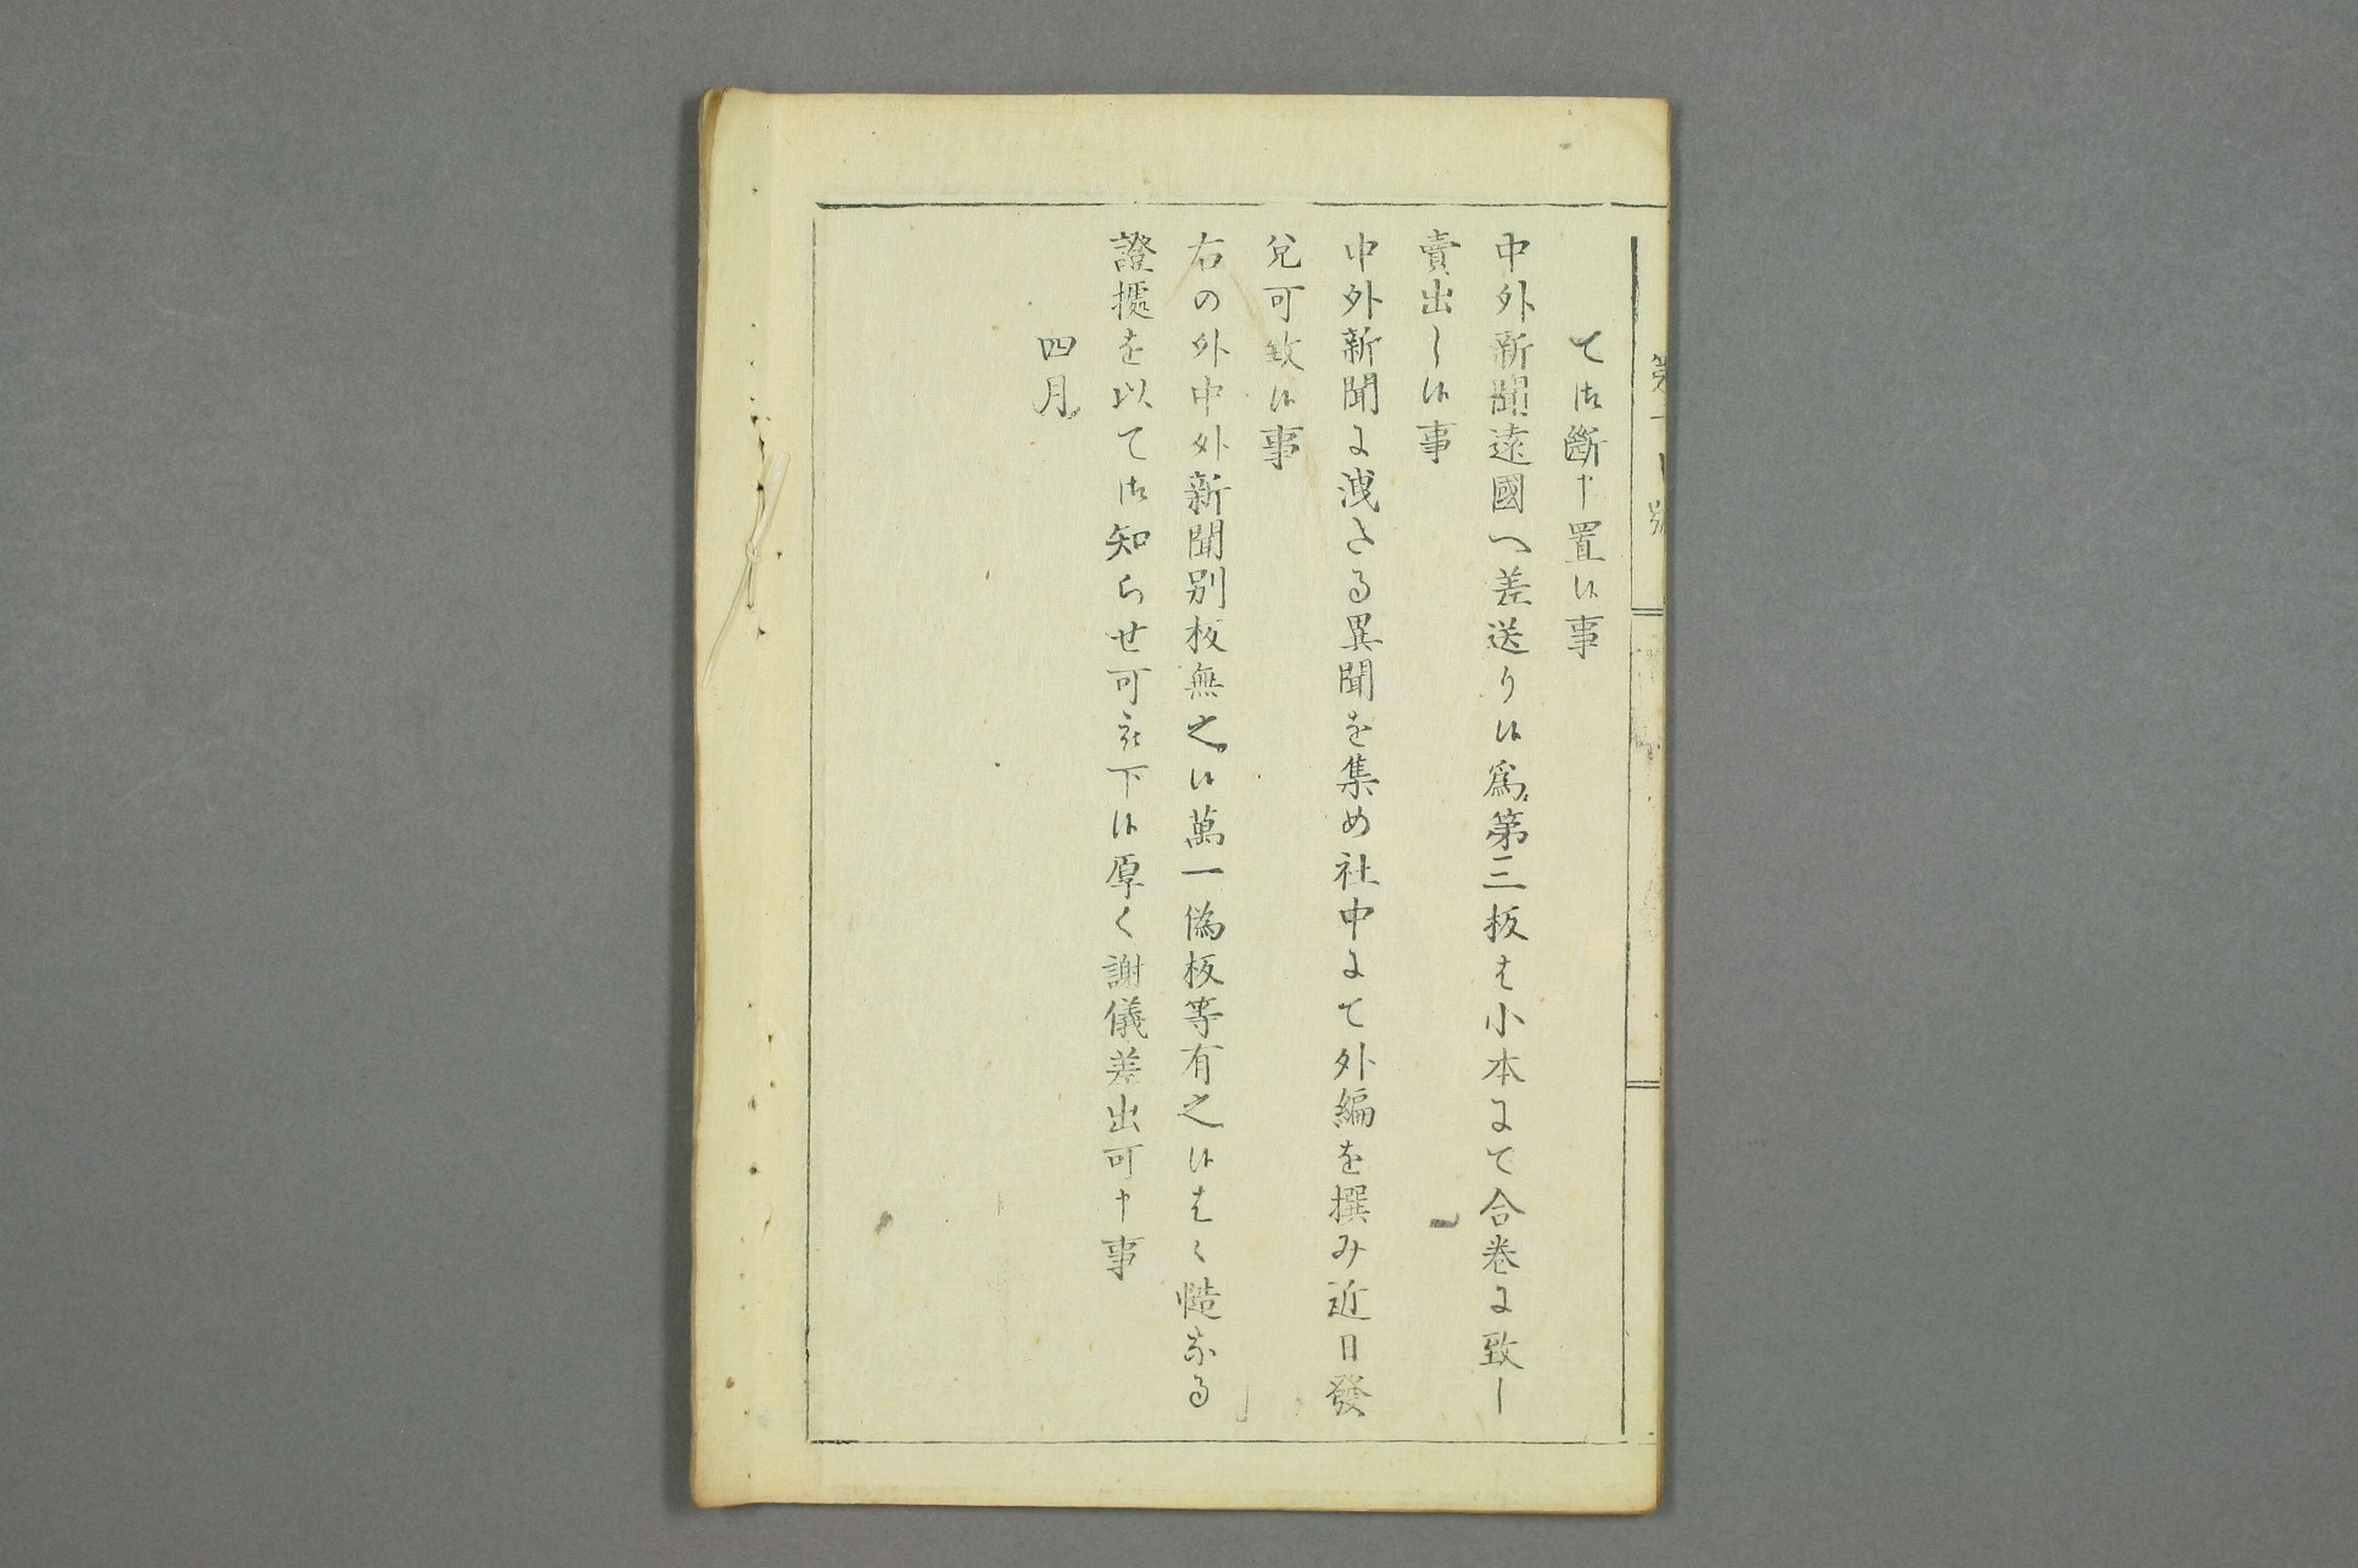 て御斷申置候事
中外新聞遠國へ差送り候爲第三板は小本にて合卷に致し
賣出し候事
中外新聞に洩たる異聞を集め社中にて外編を撰み近日發
兌可致候事
右の外中外新聞別板無之候萬一僞板等有之候はゝ慥なる
證據を以て御知らせ可被下候厚く謝儀差出可申事
四月